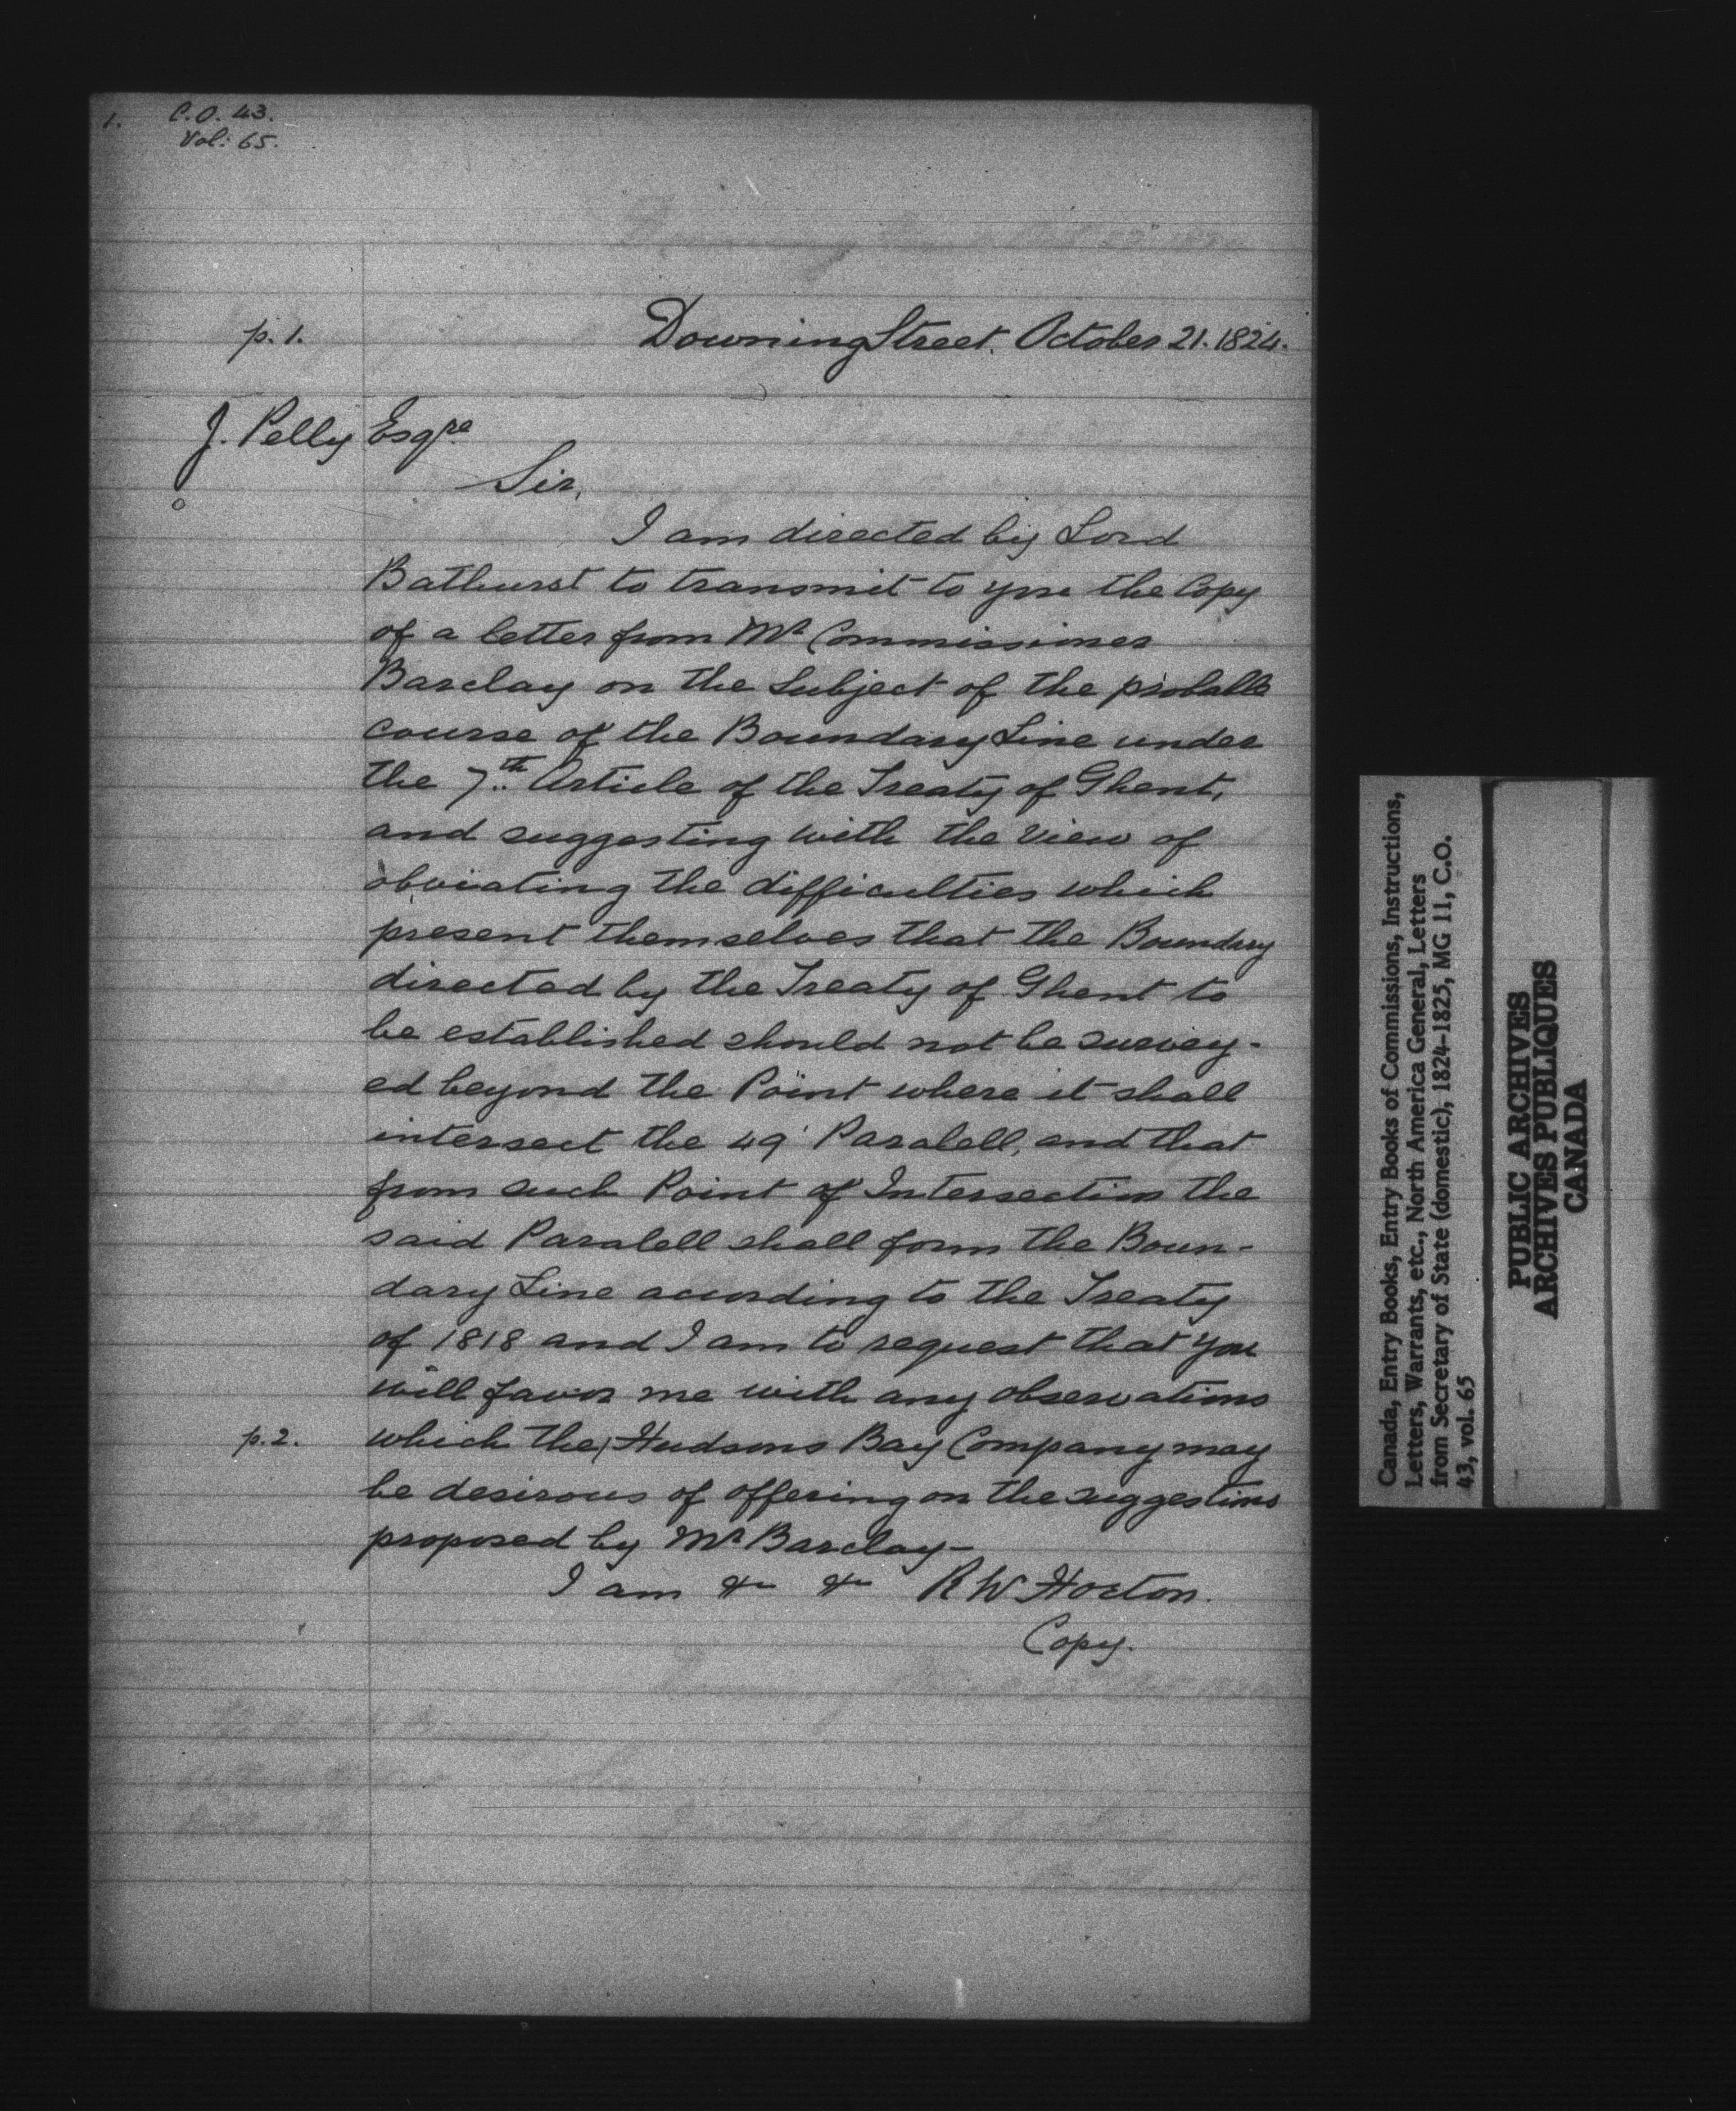 1. C.O. 43.
Vol: 65.
p. 1.
Downing Street. October 21. 1824.
J. Pelly Esqre
Sir,
I am directed by Lord
Bathurst to transmit to you the Copy
of a letter from Mr Commissioner
Barclay on the Subject of the probable
course of the Boundary Line under
the 7th Article of the Treaty of Ghent,
and suggesting with the View of
obviating the difficulties which
present themselves that the Boundary
directed by the Treaty of Ghent to
be established should not be survey-
ed beyond the Point where it shall
intersect the 49' Paralell, and that
from such Point of Intersection the
said Paralell shall form the Boun-
dary Line acording to the Treaty
of 1818 and I am to request that you
will favor me with any observations
p. 2. which the/Hudsons Bay Company may
be desirous of offering on the suggestions
proposed by Mr Barclay—
I am &c &c R W Horton.
Copy.
Canada, Entry Books, Entry Books of Commissions, Instructions,
Letters, Warrants, etc., North America General, Letters
from Secretary of State (domestic), 1824-1825, MG 11, C.O.
43, vol. 65
PUBLIC ARCHIVES
ARCHIVES PUBLIQUES
CANADA